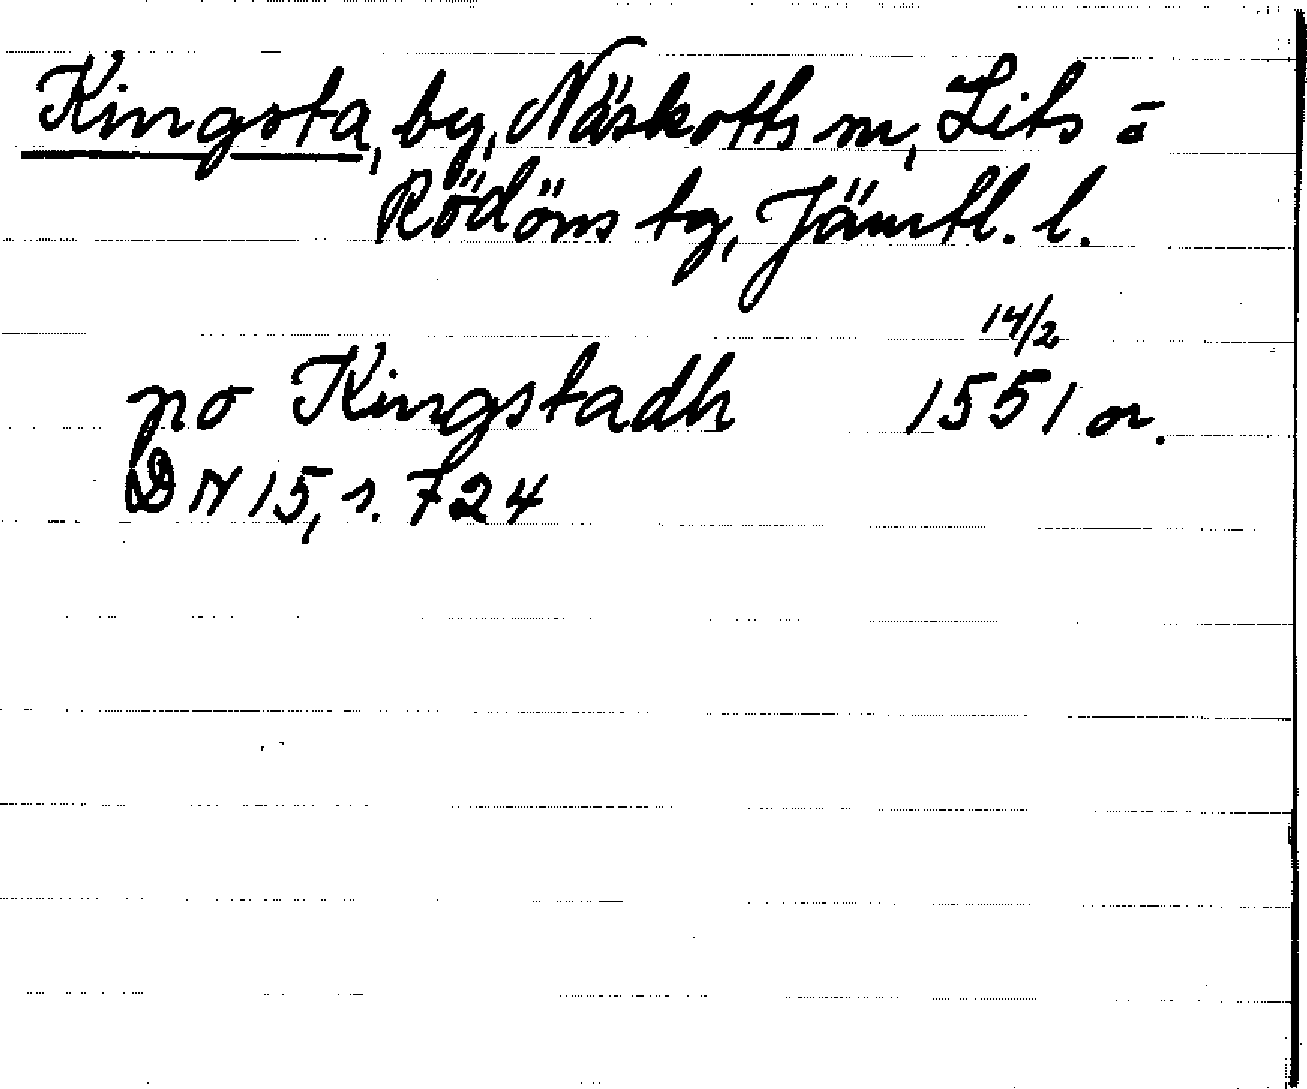 Kingsta, by, Näskotts sn, Lits o
Rödöns tg, Jämtl. l.
14/2
po Kingstadh 1551 or.
DN 15, s. 724